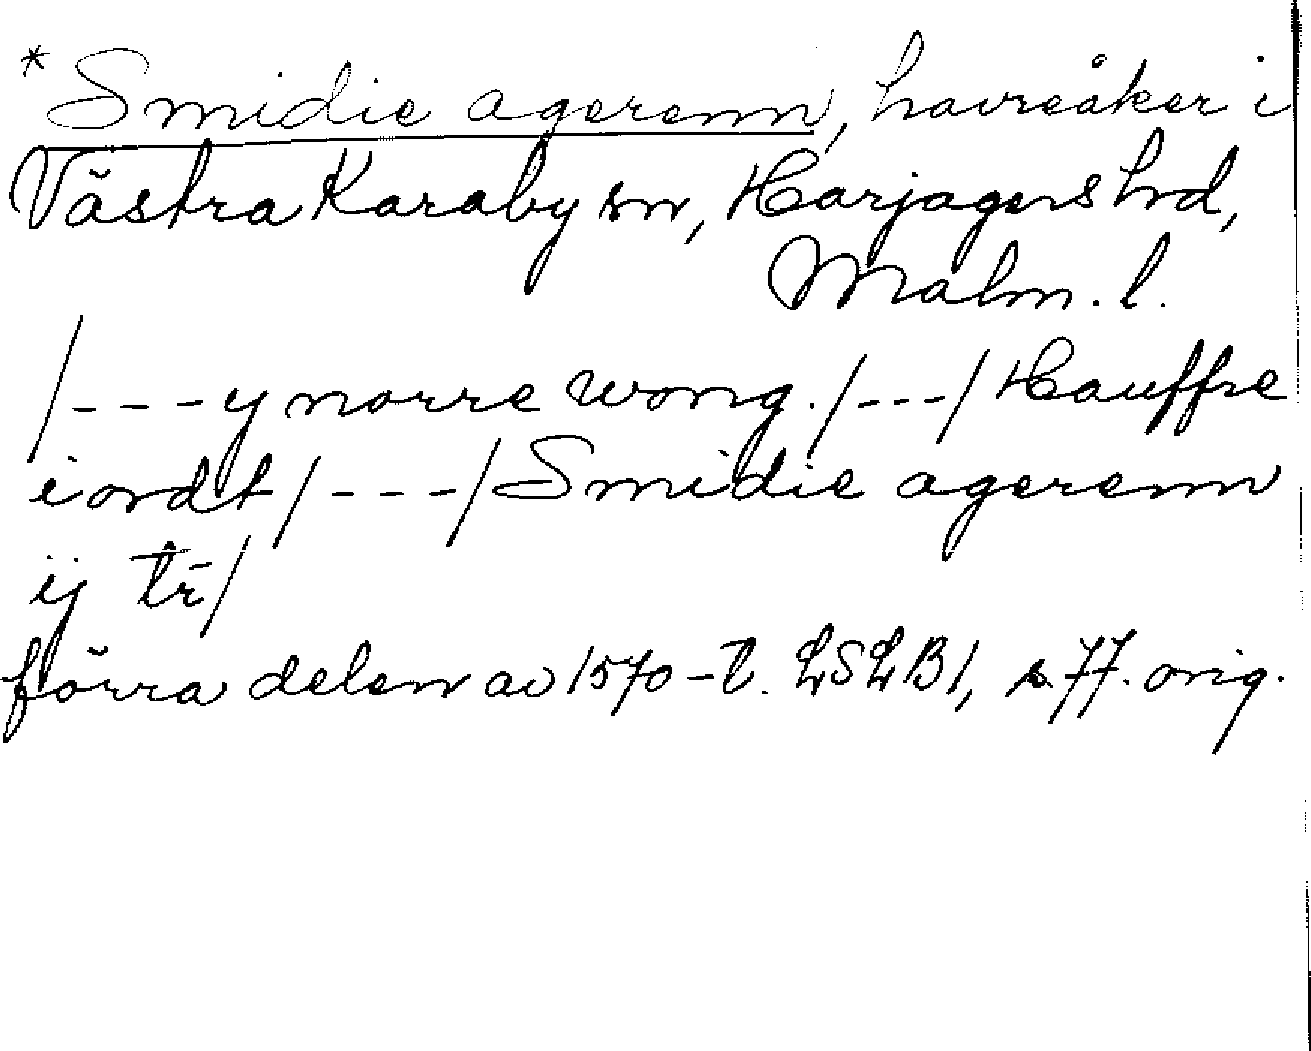 * Smidie agerenn, havreåker i
Västra Karaby sn, Harjagers hrd,
Malm. l.
/---y norre wong./---/Hauffre
iordt/---/Smidie agerenn
ij tr̄/
förra delen av 1570-t. LSLB1, s. 77. orig.